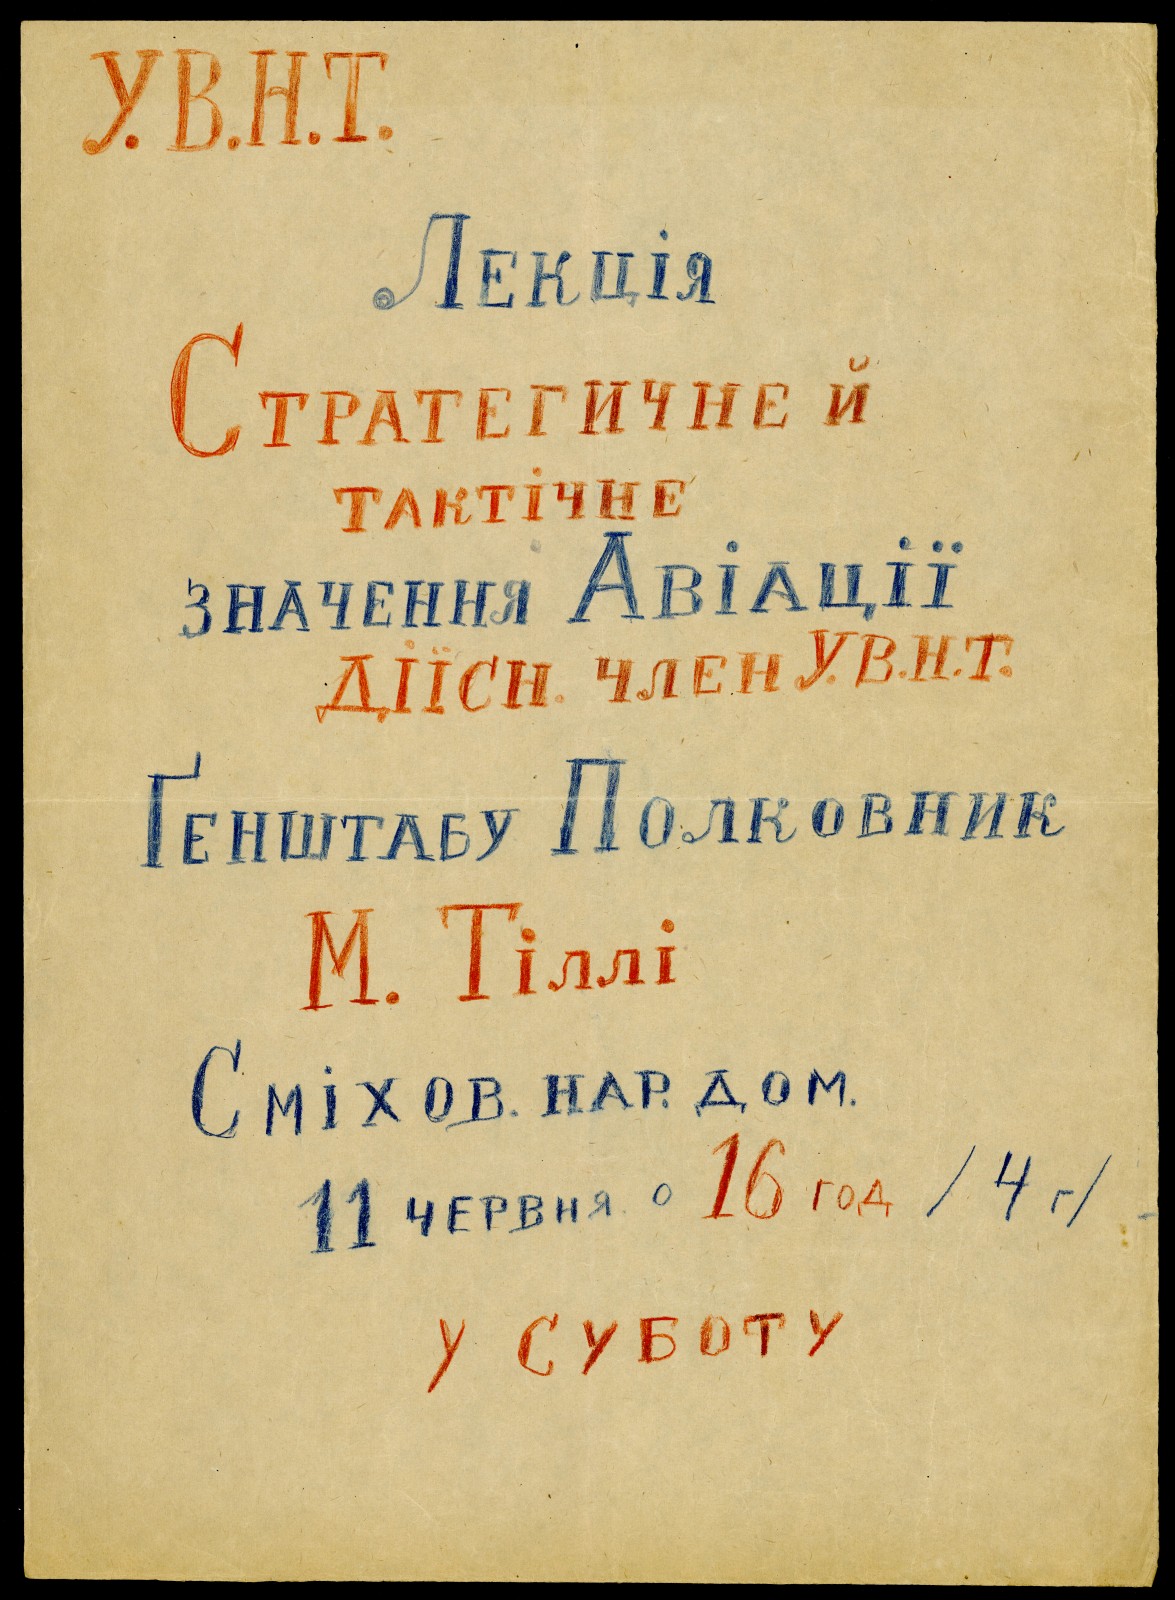 У.В.Н.Т.
Лекція
Стратегичне й
тактічне
значення Авіації
Діїсн. член У.В.Н.Т.
Ґенштабу Полковник
М. Тіллі
Сміхов. нар. дом.
11 червня о 16 год / 4 г/
у суботу